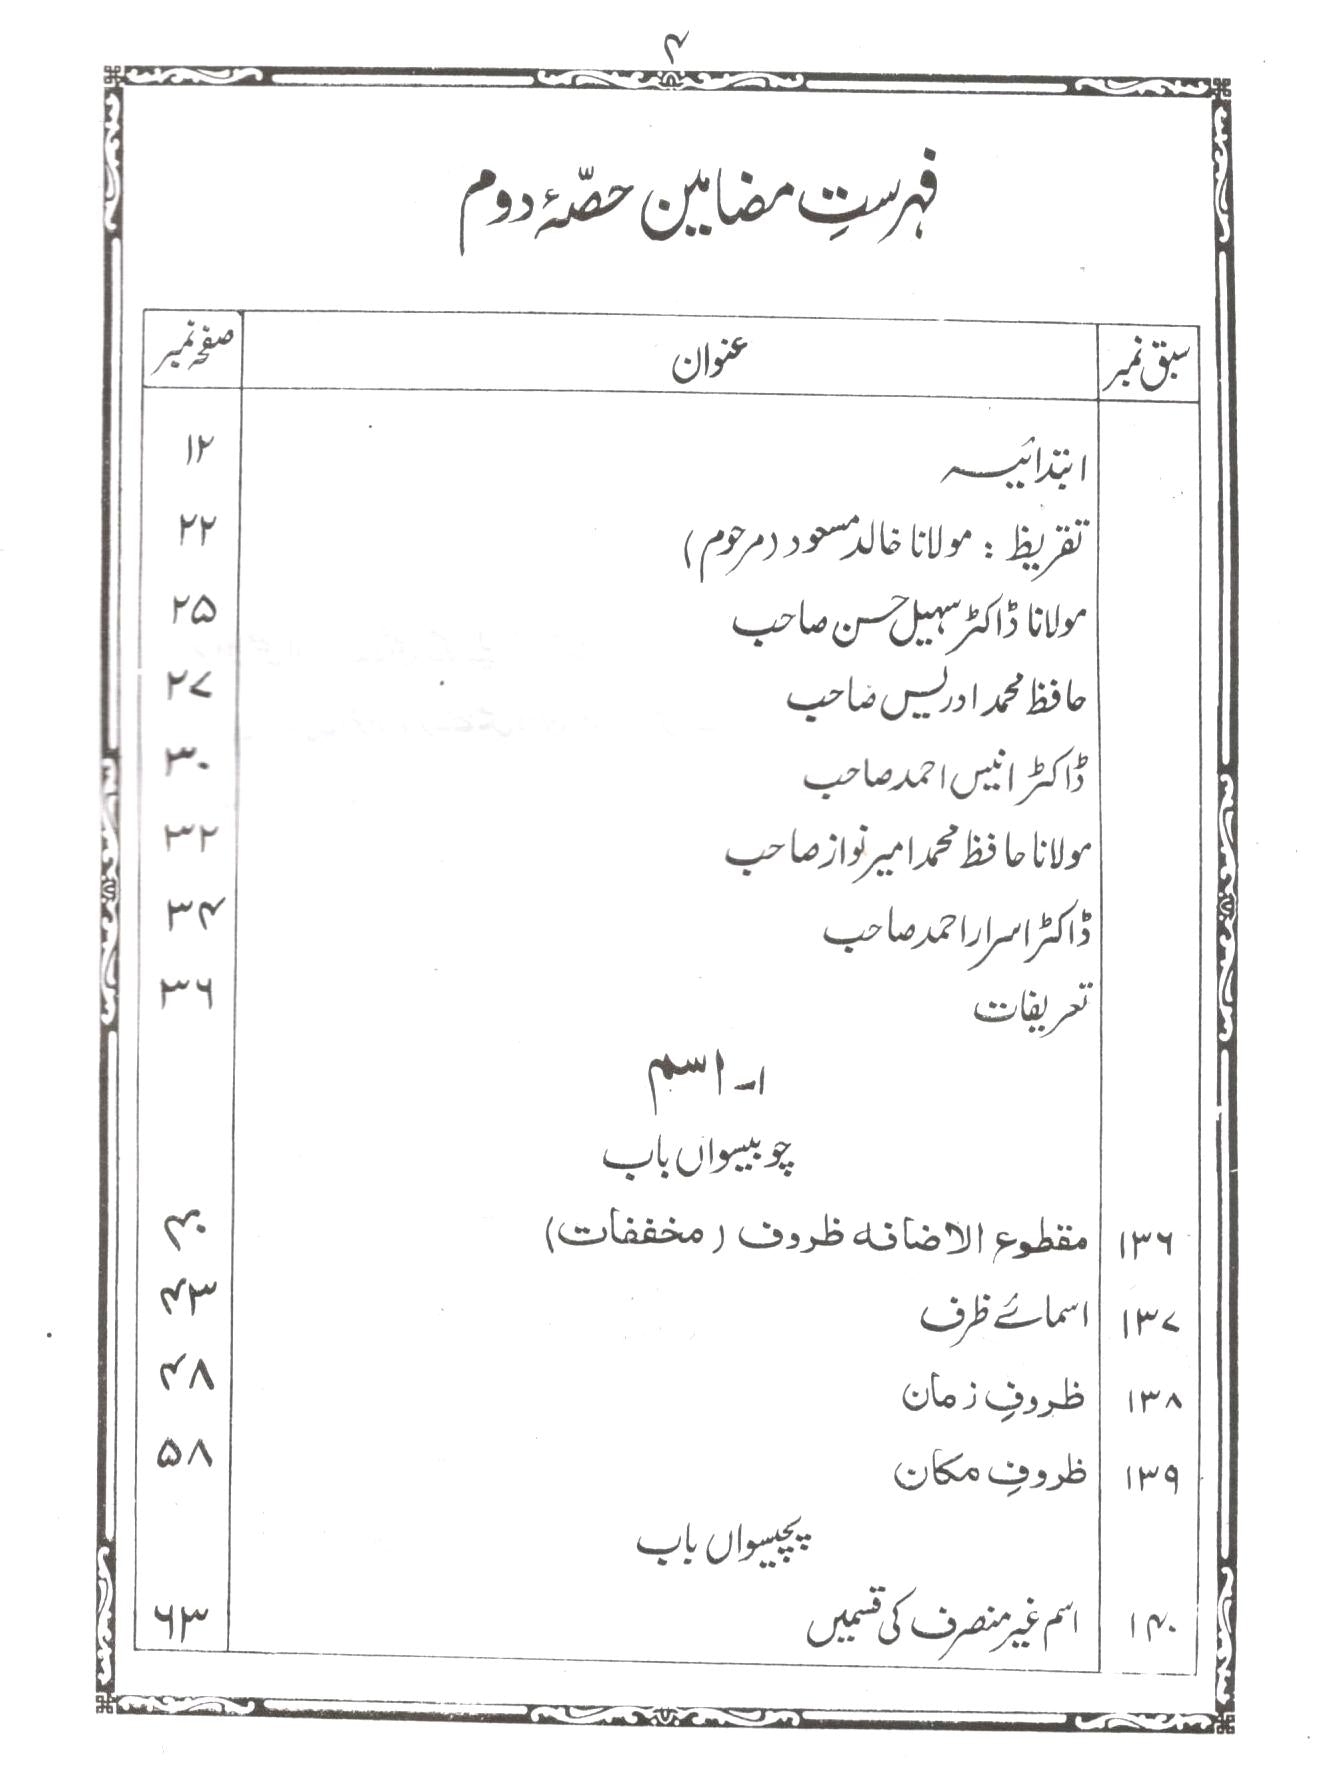 ۴
فہرستِ مضامین حصّۂ دوم
سبق نمبر عنوان صفحہ نمبر
ابتدائیہ ۱۲
تقریظ : مولانا خالد مسعود (مرحوم) ۲۲
مولانا ڈاکٹر سہیل حسن صاحب ۲۵
حافظ محمد ادریس صاحب ۲۷
ڈاکٹر انیس احمد صاحب ۳۰
مولانا حافظ محمد امیر نواز صاحب ۳۲
ڈاکٹر اسرار احمد صاحب ۳۴
تعریفات ۳۶
۱۔ اسم
چوبیسواں باب
۱۳۶ مقطوع الاضافہ ظروف (مخففات) ۴۰
۱۳۷ اسمائے ظرف ۴۳
۱۳۸ ظروفِ زمان ۴۸
۱۳۹ ظروفِ مکان ۵۸
پچیسواں باب
۱۴۰ اسم غیر منصرف کی قسمیں ۶۳